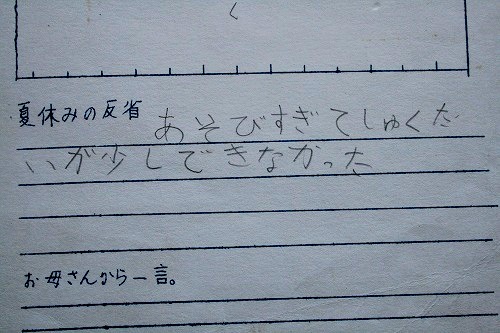 く
夏休みの反省 あそびすぎてしゅくだ
いが少しできなかった
お母さんから一言。